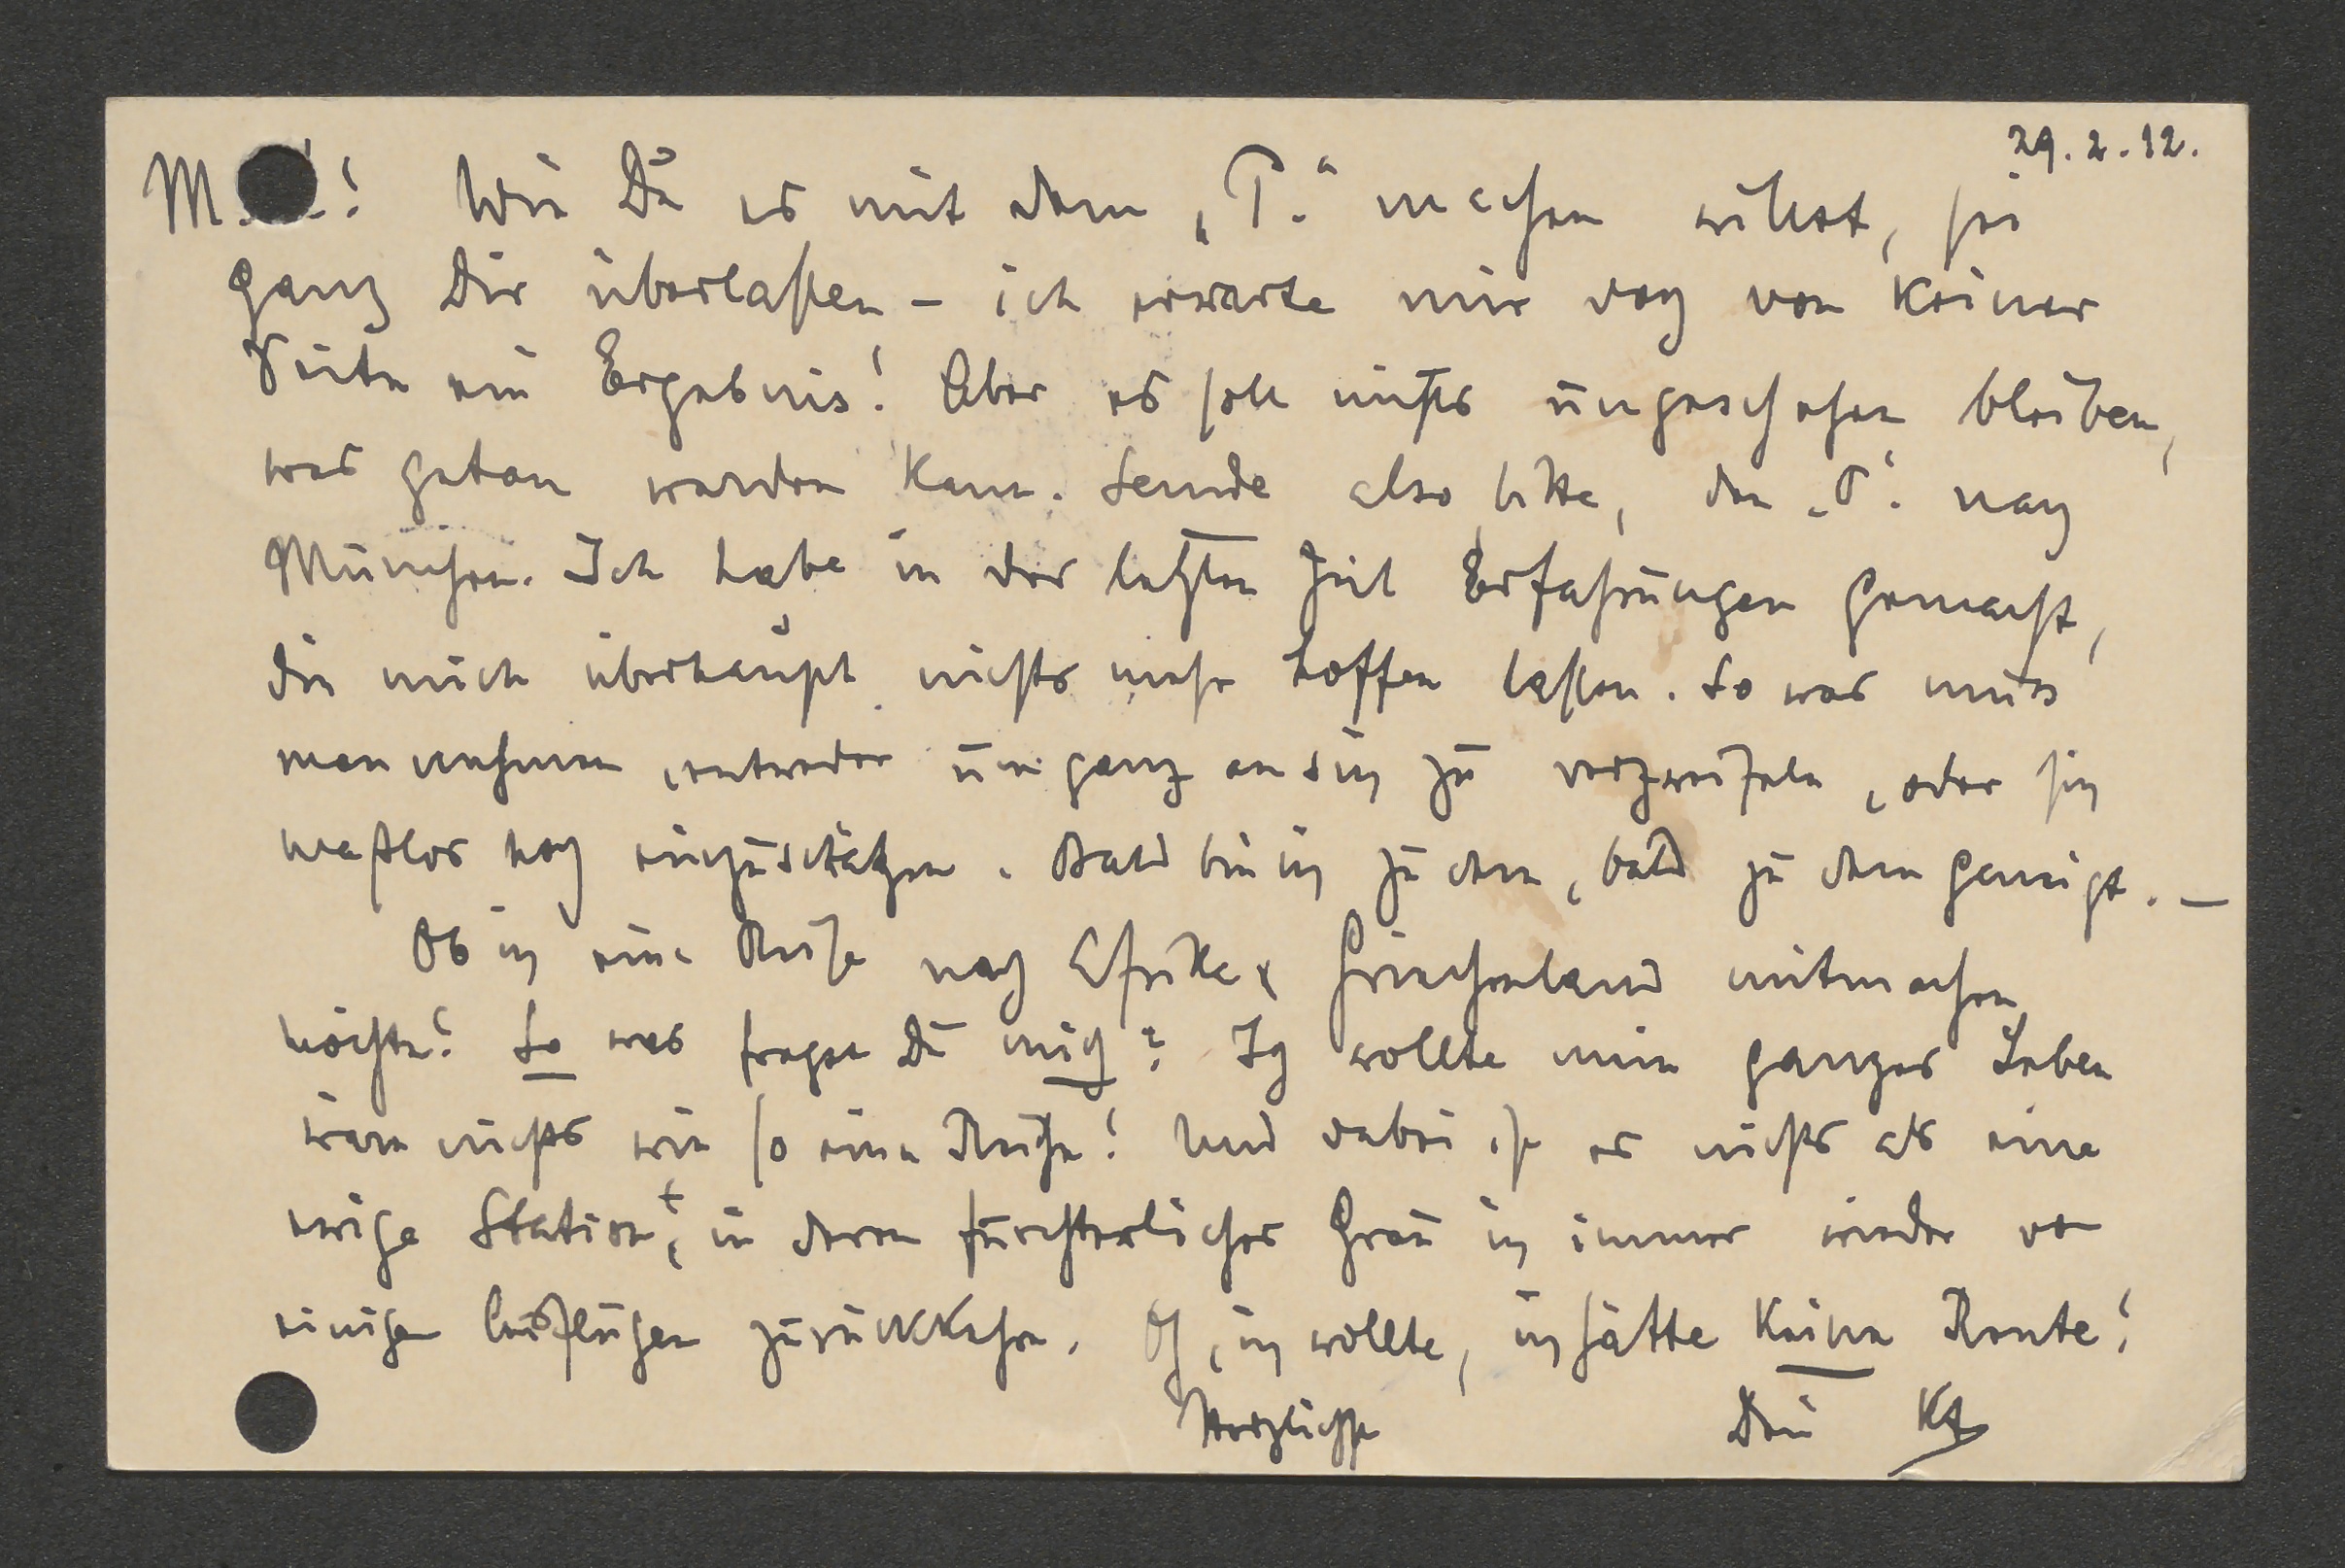 29.2.12.
M. L.! Wie Du es mit dem „T.“ machen willst, sei
ganz Dir überlassen – ich erwarte mir doch von keiner
Seite ein Ergebnis! Aber es soll nichts ungeschehen bleiben,
was getan werden kann. Sende also, bitte, den „T“. nach
München. Ich habe in der letzten Zeit Erfahrungen gemacht,
die mich überhaupt nichts mehr hoffen lassen. So was muss
man nehmen, entweder um ganz an sich zu verzweifeln, oder sich
maßlos hoch einzuschätzen. Bald bin ich zu dem, bald zu dem geneigt. –
Ob ich eine Reise nach Afrika & Griechenland mitmachen
möchte? So was fragst Du mich? Ich wollte mein ganzes Leben
wäre nichts wie so eine Reise! Und dabei ist es nichts als eine
ewige Station, in deren fürchterliches Grau ich immer wieder von
einigen Ausflügen zurückkehre. Oh, ich wollte, ich hätte keine Rente!
Herzlichst Dein